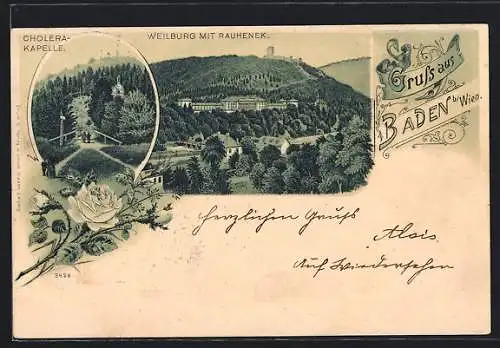 CHOLERA-
KAPELLE.
WEILBURG MIT RAUHENEK.
Gruß aus
BADEN b/Wien.
herzlichen Gruß
Alois
Auf Wiedersehen
3498